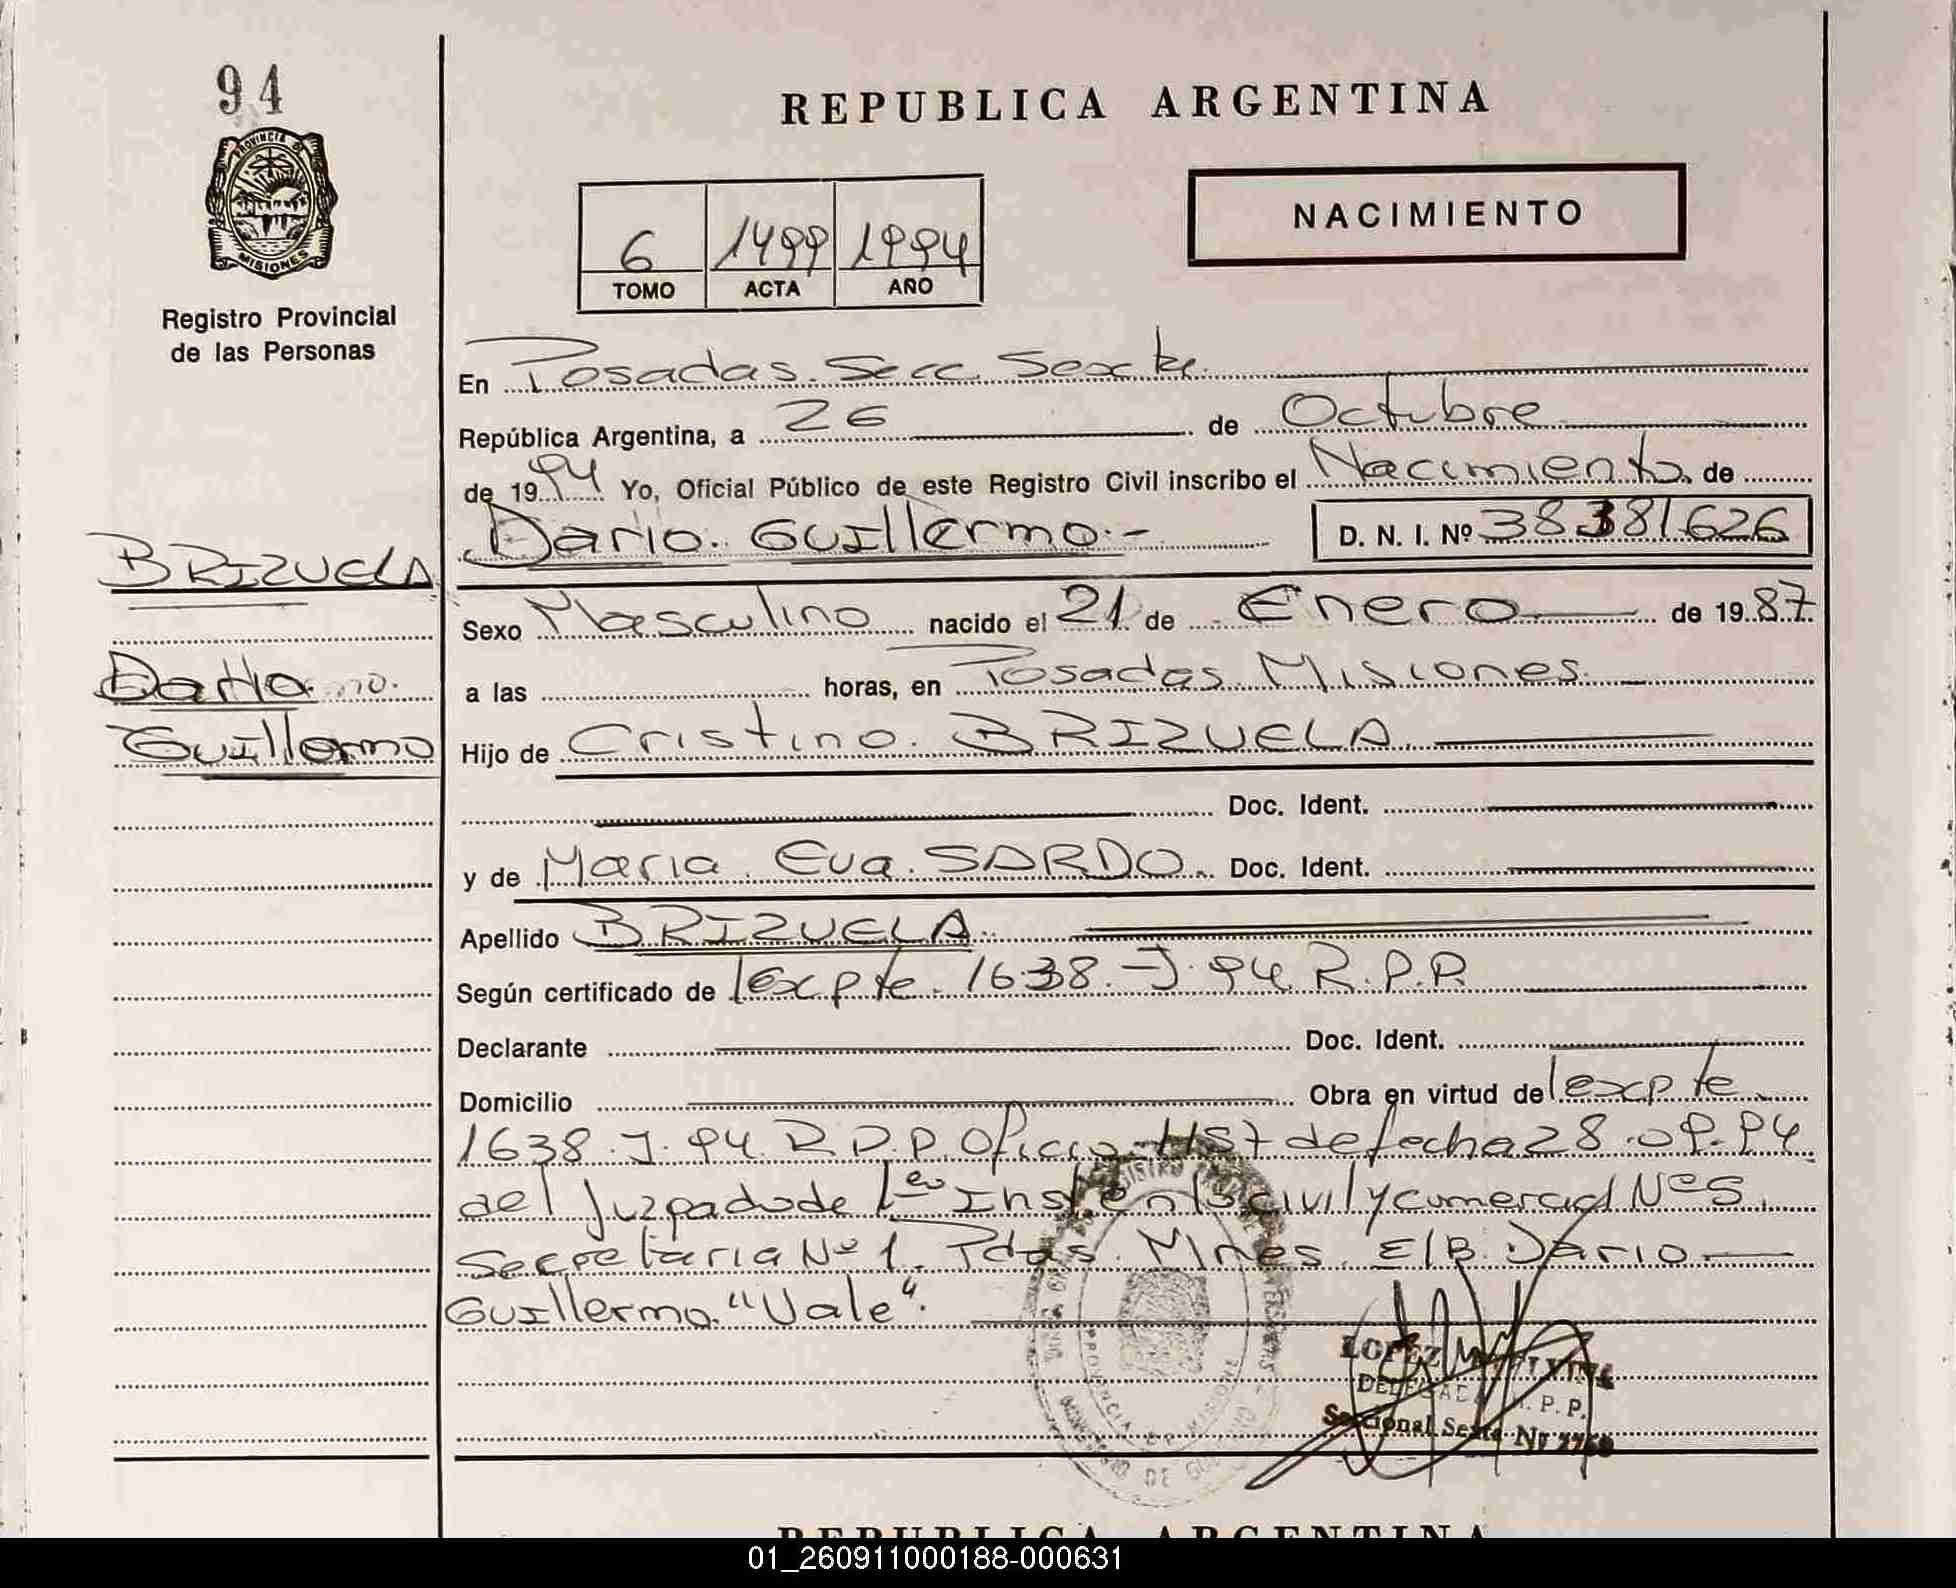 94
PROVINCIA DE
MISIONES
Registro Provincial
de las Personas
REPUBLICA ARGENTINA
NACIMIENTO
6 1499 1994
TOMO ACTA AÑO
En Posadas. Secc. Sexta.
República Argentina, a 26 de Octubre
de 1994 Yo, Oficial Público de este Registro Civil inscribo el Nacimiento de
Dario. Guillermo.- D. N. I. Nº 38381626
BRIZUELA
Sexo Masculino nacido el 21 de Enero de 1987
Dario
a las horas, en Posadas Misiones.
Guillermo
Hijo de Cristino. BRIZUELA.
Doc. Ident.
y de Maria. Eva. SARDO. Doc. Ident.
Apellido BRIZUELA.
Según certificado de expte. 1638.-J-94 R.P.P.
Declarante Doc. Ident.
Domicilio Obra en virtud del expte
1638.J.94. R.P.P. Oficio de fecha 28.09.94
del Juzgado de 1era Inst en lo civil y comercial Nº 5.
Secretaria Nº 1. Pdas. Mnes. E/B. Dario
Guillermo. "Vale".
PROVINCIA DE MISIONES
LOPEZ
R. P. P.
Seccional Sexta
REPUBLICA ARGENTINA
01_260911000188-000631